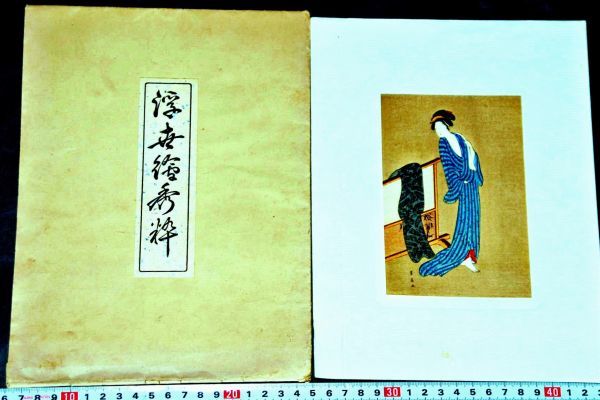 浮世絵秀粋
6 7 8 9 10 1 2 3 4 5 6 7 8 9 20 1 2 3 4 5 6 7 8 9 30 1 2 3 4 5 6 7 8 9 40 1 2 3